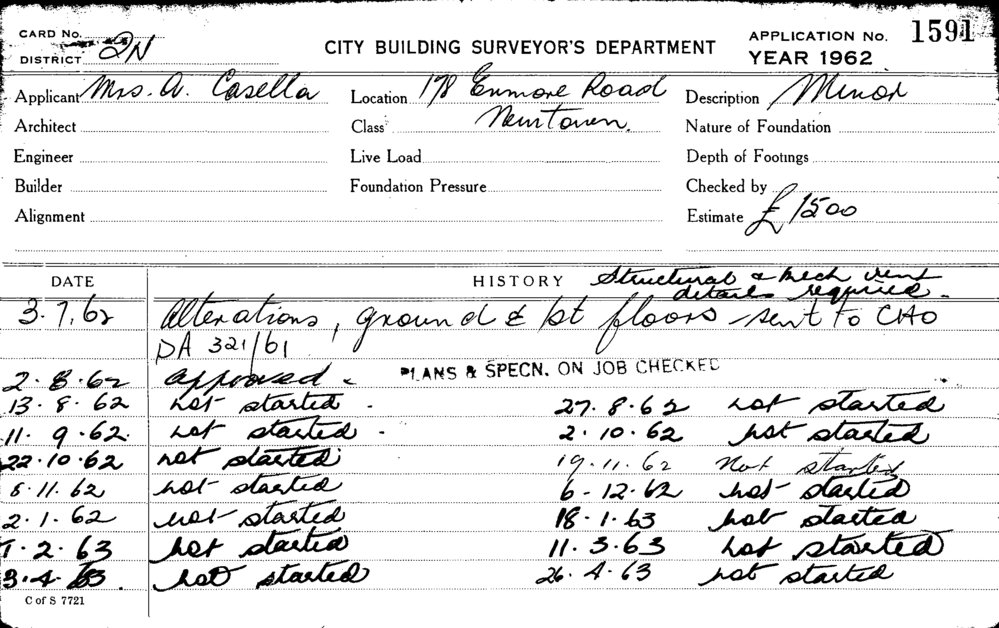 CARD No.
DISTRICT 2N
CITY BUILDING SURVEYOR'S DEPARTMENT
APPLICATION No. 1591
YEAR 1962
Applicant Mrs. A. Casella Location 178 Enmore Road Description Minor
Architect Class Newtown. Nature of Foundation
Engineer Live Load Depth of Footings
Builder Foundation Pressure Checked by
Alignment Estimate £1500
DATE HISTORY Structural & Mech vent
details required.
3.7.62 Alterations, ground & 1st floors - sent to CHO
DA 321/61
2.8.62 approved. PLANS & SPECN. ON JOB CHECKED
13.8.62 not started. 27.8.62 not started
11.9.62. not started. 2.10.62 not started
22.10.62 not started 19.11.62 Not started
8.11.62 not started 6-12.62 not started
2.1.62 not started 18.1.63 not started
1.2.63 not started 11.3.63 not started
3.4.63. not started 26.4.63 not started
C of S 7721